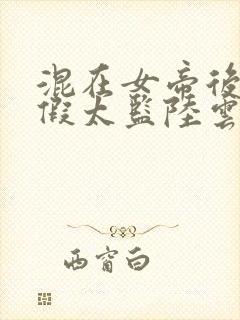 混在女帝後
假太監陸雲
西窗白